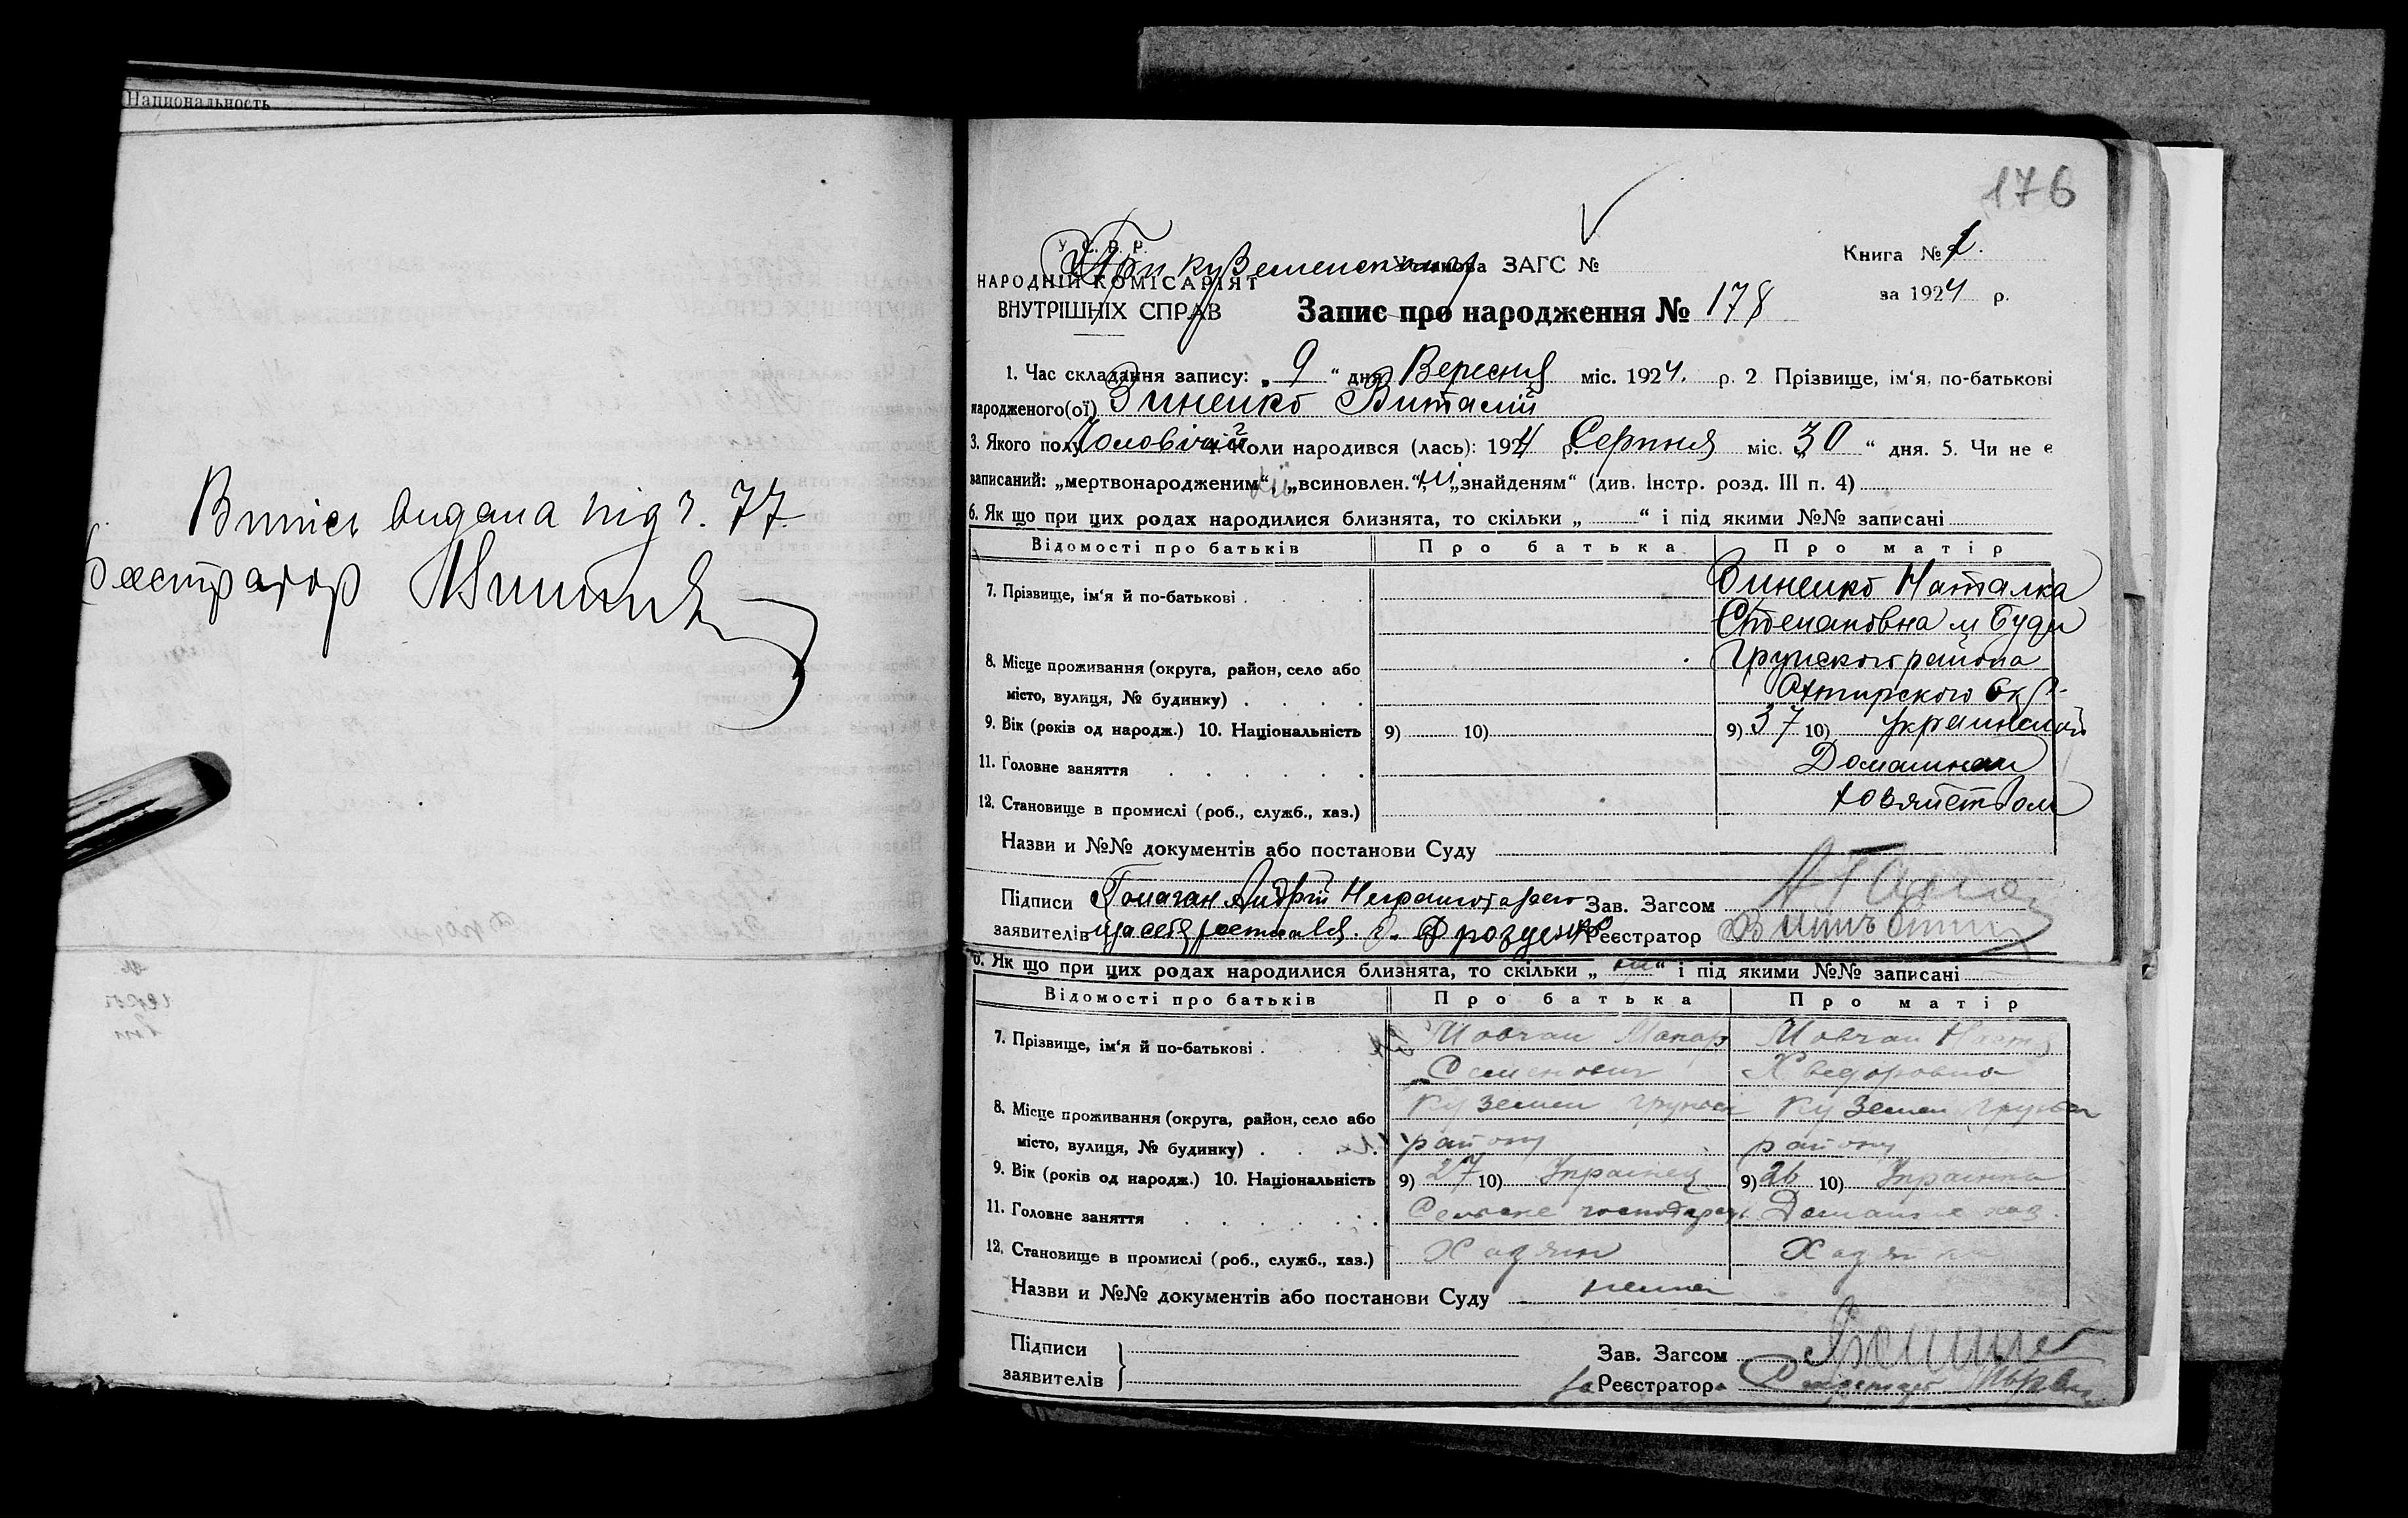 Национальность
Випись видана під ч. 77.
Реєстратор
176
У. С. Р. Р.
НАРОДНІЙ КОМІСАРІЯТ
ВНУТРІШНІХ СПРАВ
При Куземенскому
Установа ЗАГС №
Книга № 1.
за 1924 р.
Запис про народження № 178
1. Час складання запису: „ 9 “ дня Вересня міс. 1924. р. 2 Прізвище, ім‘я, по-батькові
народженого(ої) Зиненко Виталій
3. Якого полу Чоловічий 4. Коли народився (лась): 1924 р. Серпня міс. „ 30 “ дня. 5. Чи не є
записаний: „мертвонародженим“, „всиновлен.“, ні „знайденям“ (див. Інстр. розд. III п. 4)
6. Як що при цих родах народилися близнята, то скільки „ “ і під якими №№ записані
Відомості про батьків Про батька Про матір
7. Прізвище, ім‘я й по-батькові . Зиненко Наталка
Степановна м Буди
8. Місце проживання (округа, район, село або Грунского района
місто, вулиця, № будинку) . Охтирского Окр.
9. Вік (років од народж.) 10. Національність 9) 10) 9) 37 10)
11. Головне заняття Домашнем
12. Становище в промислі (роб., служб., хаз.) хозяйством
Назви и №№ документів або постанови Суду
Підписи Андрій Неграмота Зав. Загсом
заявителів Дрозденко Реєстратор
6. Як що при цих родах народилися близнята, то скільки „ ні “ і під якими №№ записані
Відомості про батьків Про батька Про матір
7. Прізвище, ім‘я й по-батькові . Мовчан Макар Мовчан
Семенович Хведоровна
8. Місце проживання (округа, район, село або Куземен Грунськ Куземен Грунськ
місто, вулиця, № будинку) . району району
9. Вік (років од народж.) 10. Національність 9) 27 10) Украінец 9) 26 10) Украінка
11. Головне заняття Сельске господарст. Домашне хаз.
12. Становище в промислі (роб., служб., хаз.) Хазяин Хазяйка
Назви и №№ документів або постанови Суду нема
Підписи Зав. Загсом
заявителів за Реєстратора